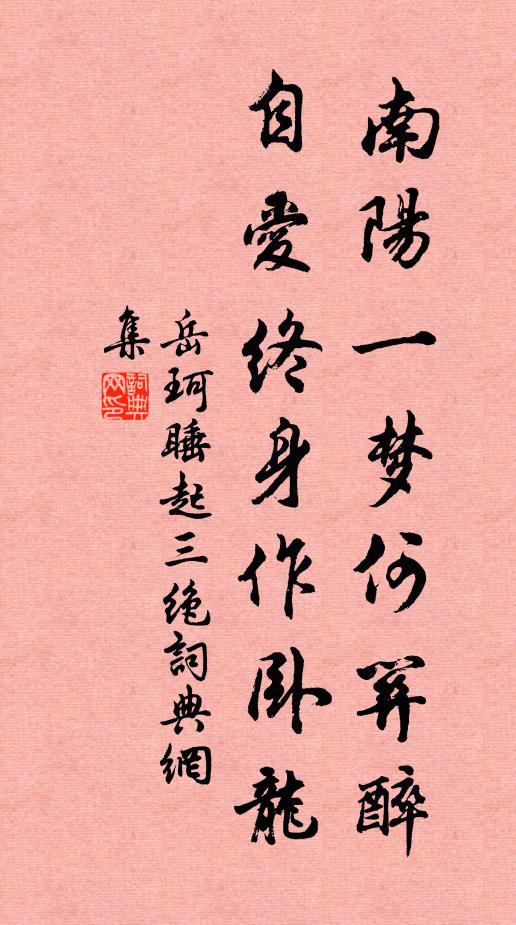 南陽一梦何関醉
自愛終身作卧龍
岳珂睡起三絶詞典網
集
詞典
网印